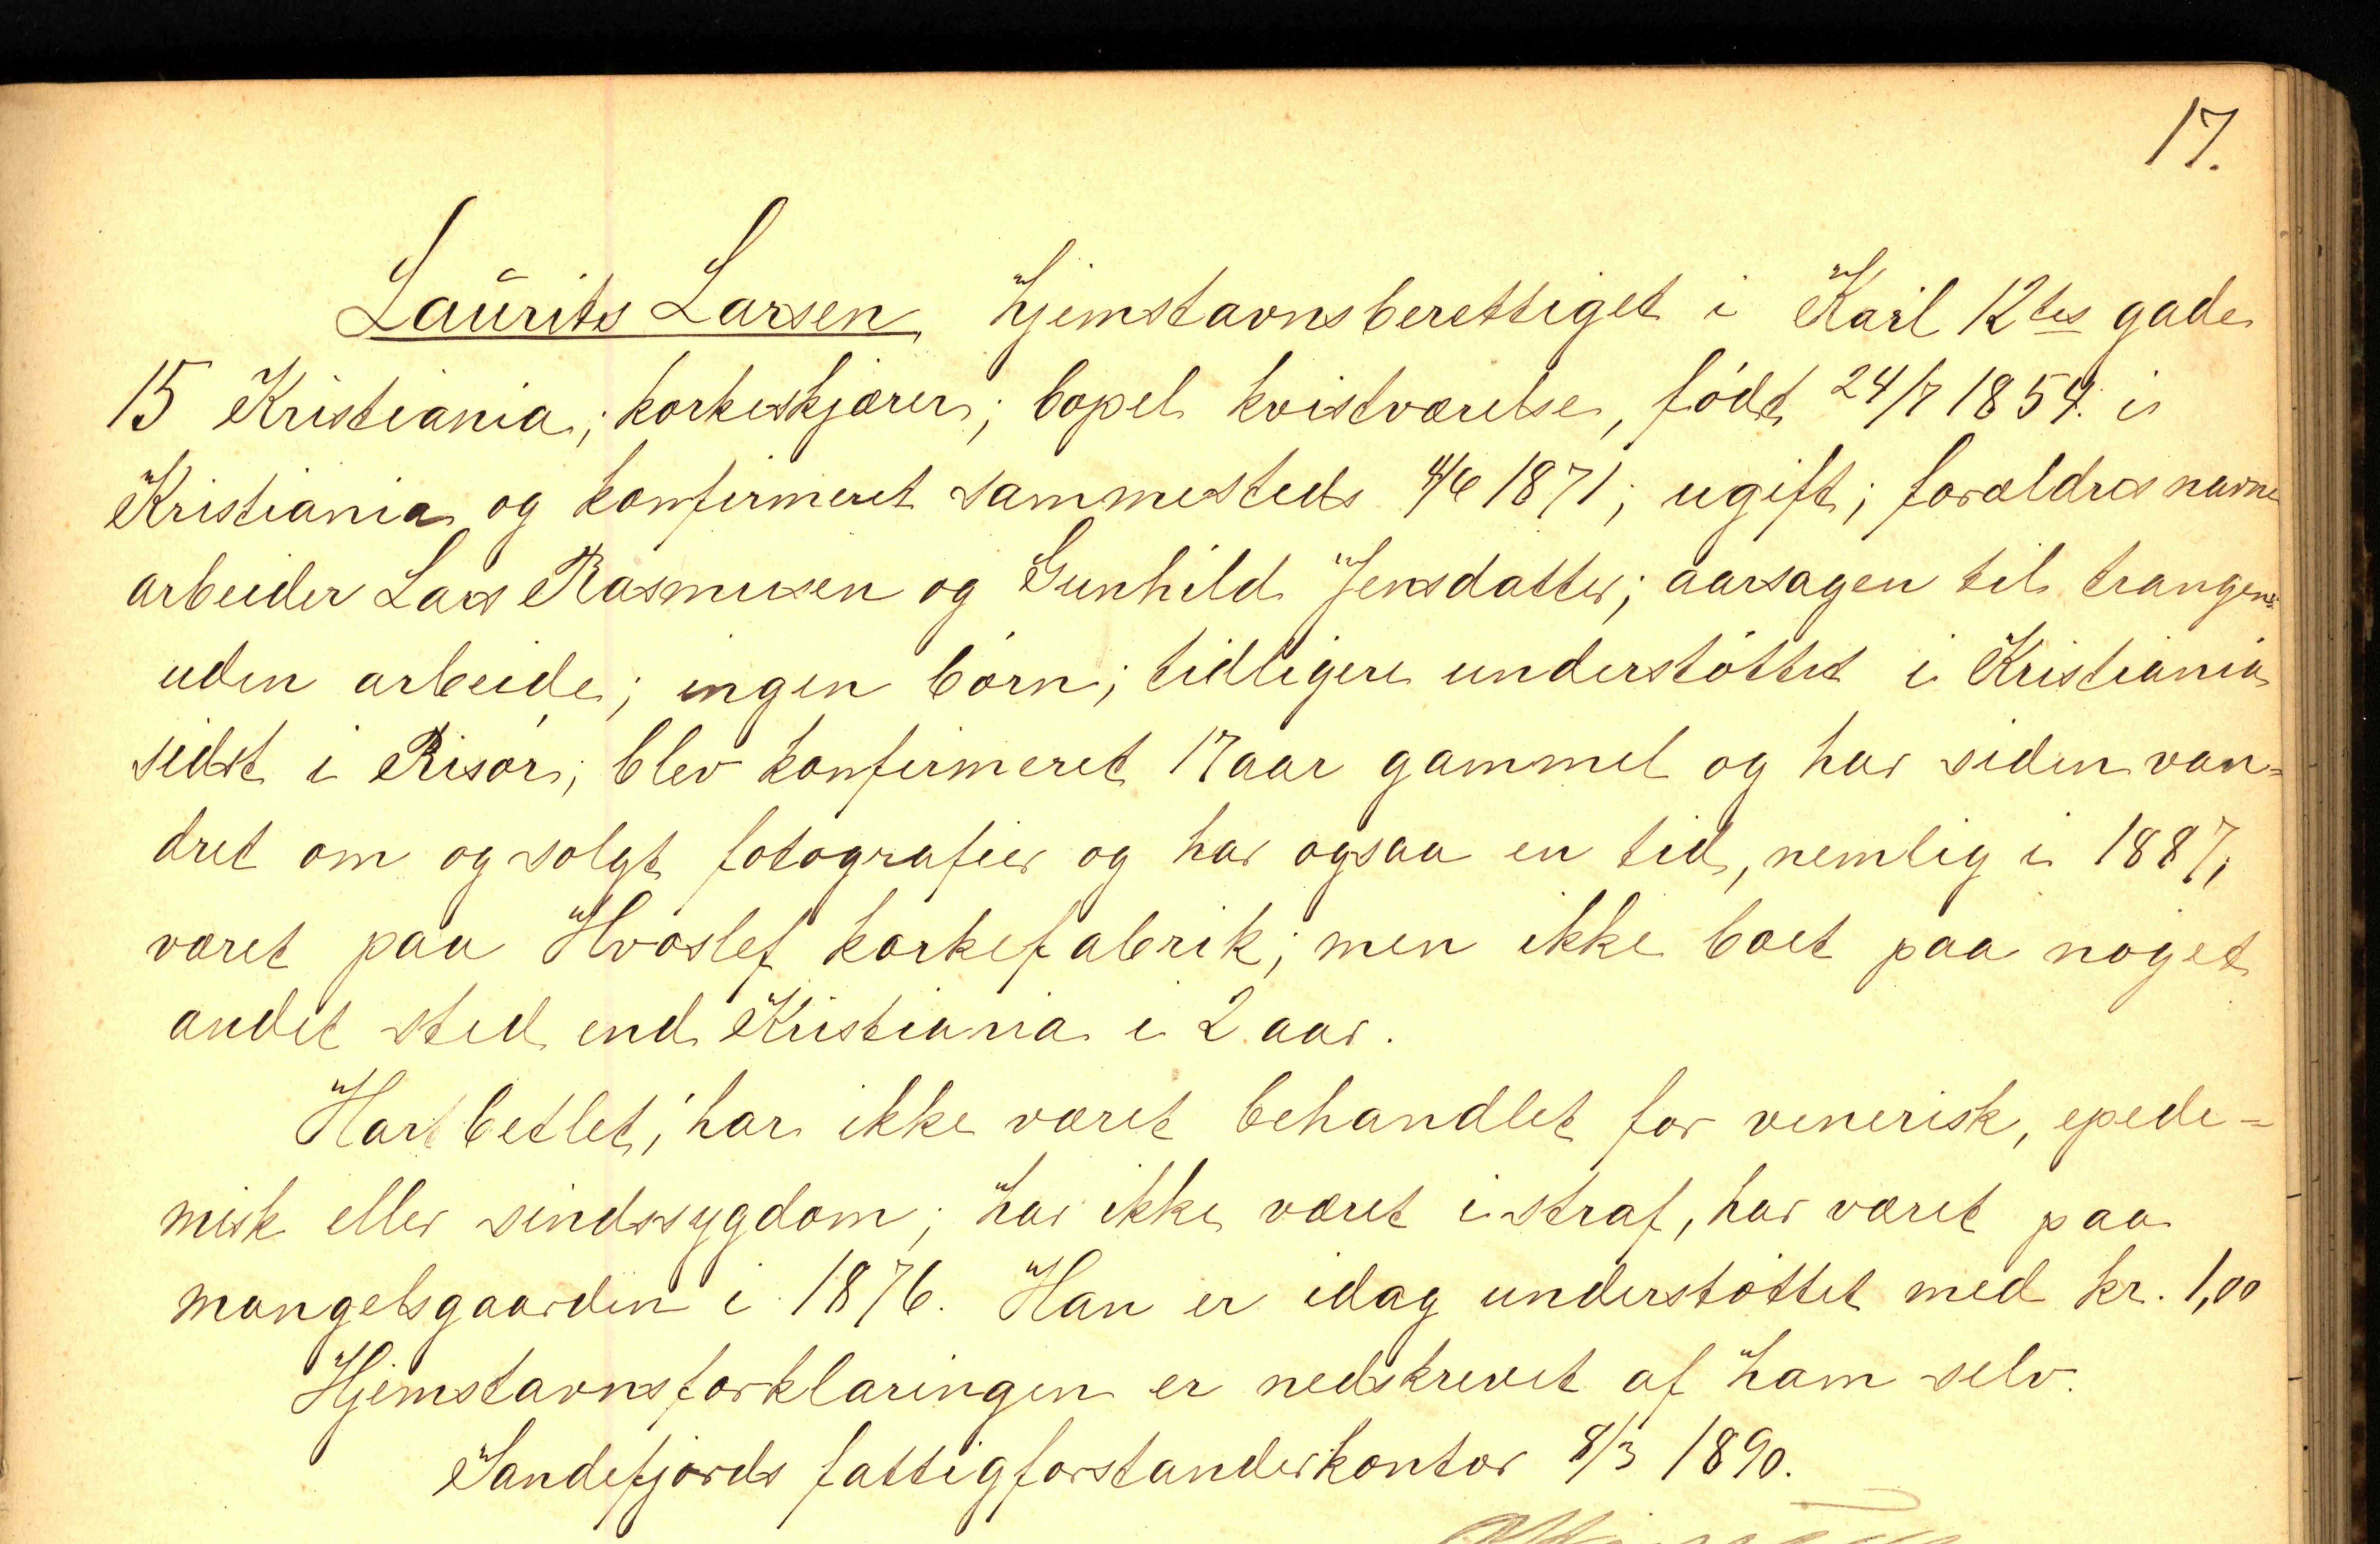 17.
Laurits Larsen hjemstavnsberettiget i Karl 12tes gade
15 Kristiania; korkeskjærer; bopel kvistværelse, født 24/7 1854 i
Kristiania og konfirmeret sammesteds 4/6 1871; ugift; forældres navne
arbeider Lars Rasmusen og Gunhild Jensdatter; aarsagen til trangen:
uden arbeide; ingen børn; tidligere understøttet i Kristiania
sidst i Risør; blev konfirmeret 17 aar gammel og har siden van=
dret om og solgt fotografier og har ogsaa en tid, nemlig i 1887,
været paa Hvoslef korkefabrik; men ikke boet paa noget
andet sted end Kristiania i 2 aar.
Har betlet; har ikke været behandlet for venerisk, epede=
misk eller sindssygdom; har ikke været i straf, har været paa
mangelsgaarden i 1876. Han er idag understøttet med kr. 1,00
Hjemstavnsforklaringen er nedskrevet af ham selv.
Sandefjords fattigforstanderkontor 8/3 1890.